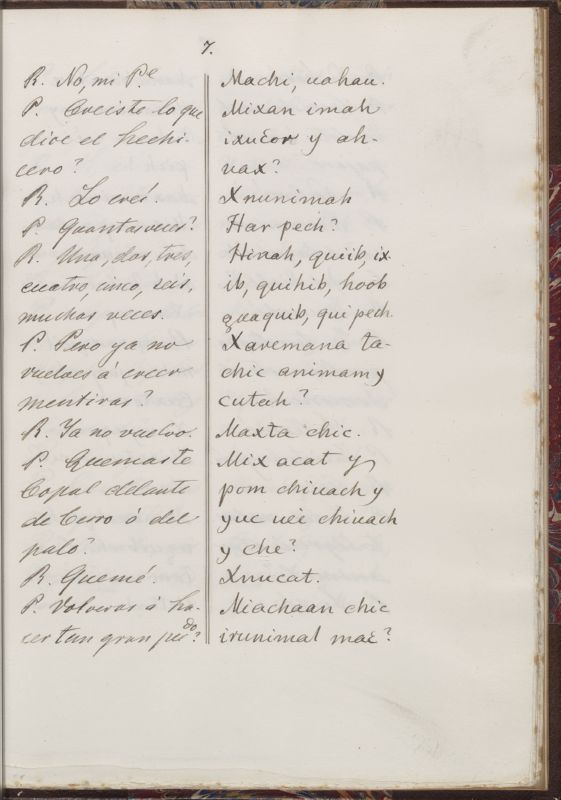 7.
R. No, mi P.e
P. Creiste lo que
dice el hechi-
cero?
R. Lo creí.
P. Quantas veces?
R. Una, dos, tres,
cuatro, cinco, seis,
muchas veces.
P. Pero ya no
vuelves á creer
mentiras?
R. Ya no vuelvo.
P. Quemaste
Copal delante
de Cerro ó del
palo?
R. Quemé.
P. Volveras á ha-
cer tan gran pecdo?
Machi, uahau.
Mixan imah
ixučor y ah-
uax?
Xnunimah
Har pech?
Hinah, quiib, ix-
ib, quihib, hoob
quaquib, qui pech.
Xaremana ta-
chic animam y
cutah?
Maxta chic.
Mix acat y
pom chiuach y
yuc ueč chiuach
y che?
Xnucat.
Miachaan chic
irunimal mač?